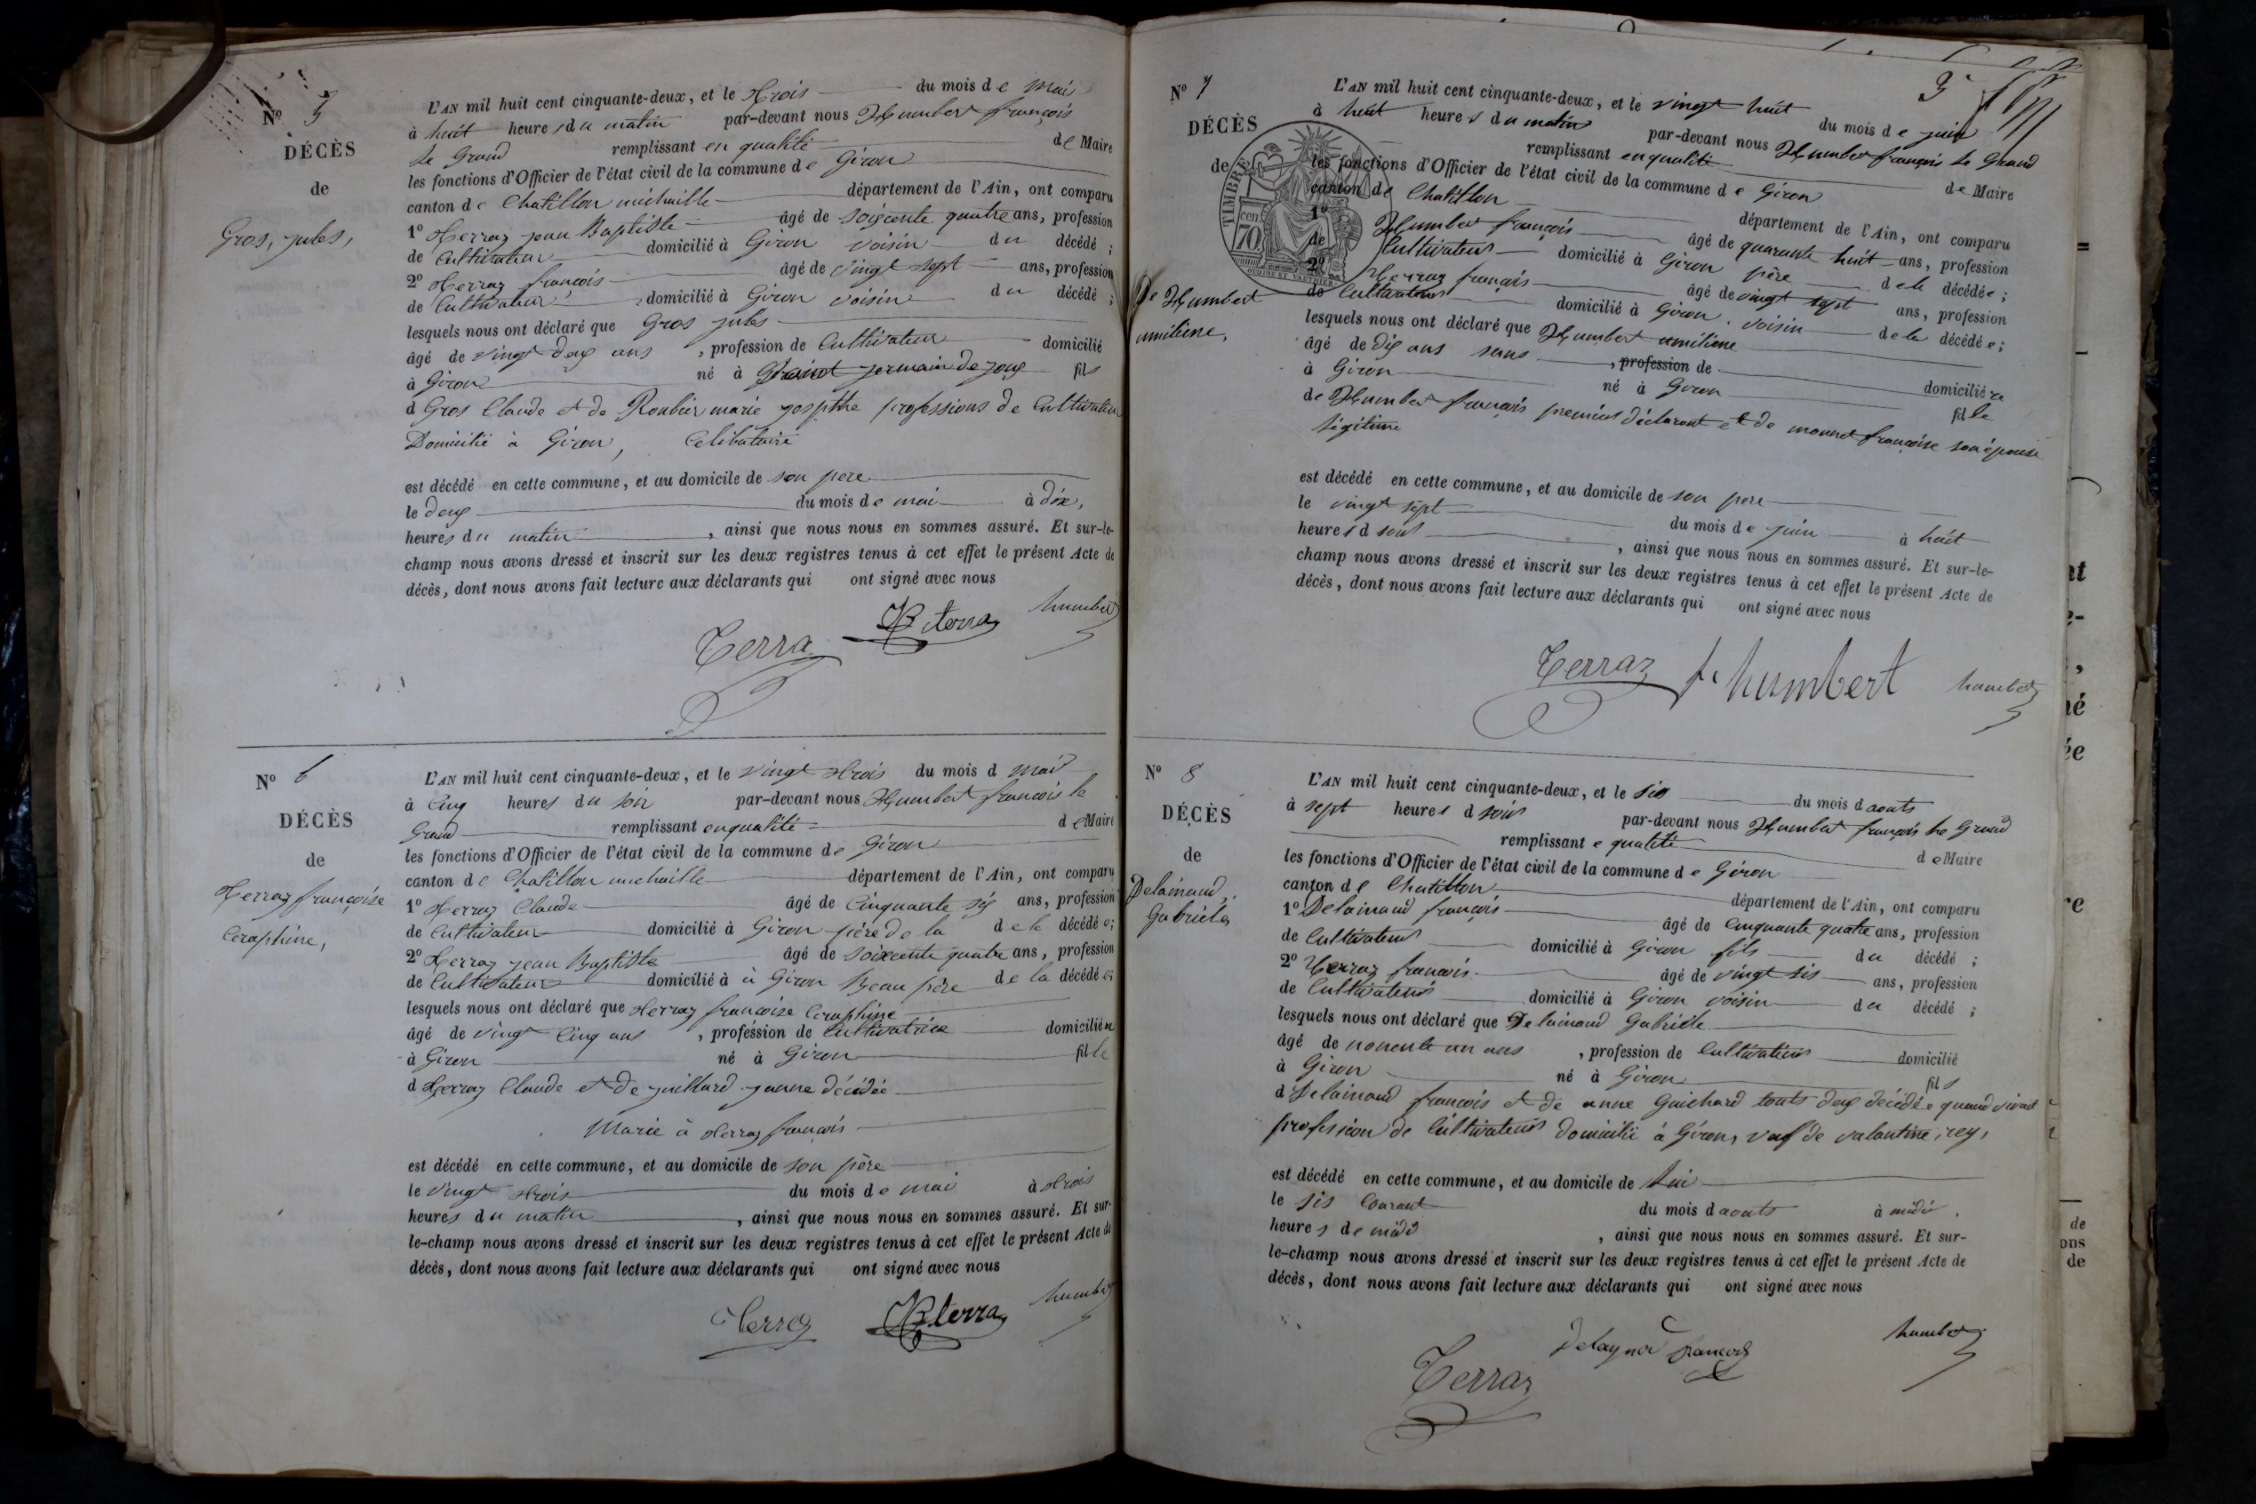 N° 5
DÉCÈS
de
Gros, jules,
L'AN mil huit cent cinquante-deux, et le trois du mois de mai
à huit heures du matin par-devant nous Humbert françois
le Grand remplissant en qualité de Maire
les fonctions d'Officier de l'état civil de la commune de Giron
canton de Chatillon michaille département de l'Ain, ont comparu
1° Terraz jean Baptiste âgé de soixente quatre ans, profession
de Cultivateur domicilié à Giron voisin du décédé ;
2° Terraz françois âgé de vingt sept ans, profession
de Cultivateur domicilié à Giron voisin du décédé ;
lesquels nous ont déclaré que Gros jules
âgé de vingt deux ans , profession de Cultivateur domicilié
à Giron né à Saint germain de joux fils
d Gros Claude et de Roubier marie professions de Cultivateur
Domicilié à Giron, Célibataire
est décédé en cette commune, et au domicile de son pere
le deux du mois de mai à dix,
heures du matin , ainsi que nous nous en sommes assuré. Et sur-le-
champ nous avons dressé et inscrit sur les deux registres tenus à cet effet le présent Acte de
décès, dont nous avons fait lecture aux déclarants qui ont signé avec nous
Terra JB terra humbert
N° 6
DÉCÈS
de
Terraz françoise
Ceraphine,
L'AN mil huit cent cinquante-deux, et le vingt trois du mois d mai
à Cinq heures du soir par-devant nous Humbert francois le
Grand remplissant en qualité de Maire
les fonctions d'Officier de l'état civil de la commune de Giron
canton de Chatillon michaille département de l'Ain, ont comparu
1° Terraz Claude âgé de Cinquante six ans, profession
de Cultivateur domicilié à Giron père de la de la décédée;
2° Terraz jean Baptiste âgé de soixcente quatre ans, profession
de Cultivateur domicilié à à Giron Beau père de la décédée;
lesquels nous ont déclaré que Terraz francoise Ceraphine
âgé de vingt Cinq ans , profession de Cultivatrice domiciliée
à Giron né à Giron fille
d Terraz Claude et de juillard jeanne décédée
Marie à Terraz françois
est décédé en cette commune, et au domicile de son père
le vingt trois du mois de mai à trois
heures du matin , ainsi que nous nous en sommes assuré. Et sur-
le-champ nous avons dressé et inscrit sur les deux registres tenus à cet effet le présent Acte de
décès, dont nous avons fait lecture aux déclarants qui ont signé avec nous
Terraz JB terra humbert
3
N° 7
DÉCÈS
de
de Humbert
emiliene,
TIMBRE
70 cen
L'AN mil huit cent cinquante-deux, et le vingt huit du mois de juin
à huit heures du matin par-devant nous Humbert françois le Grand
remplissant en qualité de Maire
les fonctions d'Officier de l'état civil de la commune de Giron
canton de Chatillon département de l'Ain, ont comparu
1° Humbert françois âgé de quarante huit ans, profession
de Cultivateur domicilié à Giron père de la décédée ;
2° Terraz françois âgé de vingt sept ans, profession
de Cultivateur domicilié à Giron voisin de la décédée ;
lesquels nous ont déclaré que Humbert emiliene
âgé de dix ans sans , profession de domiciliée
à Giron né à Giron fille
de Humbert françois premier déclarant et de monnet françoise son épouse
légitime
est décédé en cette commune, et au domicile de son pere
le vingt sept du mois de juin à huit
heures d soir , ainsi que nous nous en sommes assuré. Et sur-le-
champ nous avons dressé et inscrit sur les deux registres tenus à cet effet le présent Acte de
décès, dont nous avons fait lecture aux déclarants qui ont signé avec nous
Terraz f. humbert humbert
N° 8
DÉCÈS
de
Delainaud,
Gabriele,
L'AN mil huit cent cinquante-deux, et le six du mois d aouts
à sept heures d soir par-devant nous Humbert françois le Grand
remplissant e qualité de Maire
les fonctions d'Officier de l'état civil de la commune de Giron
canton de Chatillon département de l'Ain, ont comparu
1° Delainaud françois âgé de Cinquante quatre ans, profession
de Cultivateur domicilié à Giron fils du décédé ;
2° Terraz francois âgé de vingt sis ans, profession
de Cultivateur domicilié à Giron voisin du décédé ;
lesquels nous ont déclaré que Delainaud Gabriele
âgé de nonente un ans , profession de Cultivateur domicilié
à Giron né à Giron fils
d Delainaud francois et de anne Guichard touts deux décédée quand vivait
profession de Cultivateur domicilié à Giron, vuf de valantine, rey,
est décédé en cette commune, et au domicile de lui
le sis Courant du mois d aouts à midi,
heures de midi , ainsi que nous nous en sommes assuré. Et sur-
le-champ nous avons dressé et inscrit sur les deux registres tenus à cet effet le présent Acte de
décès, dont nous avons fait lecture aux déclarants qui ont signé avec nous
Delaynod francois humbert
Terraz